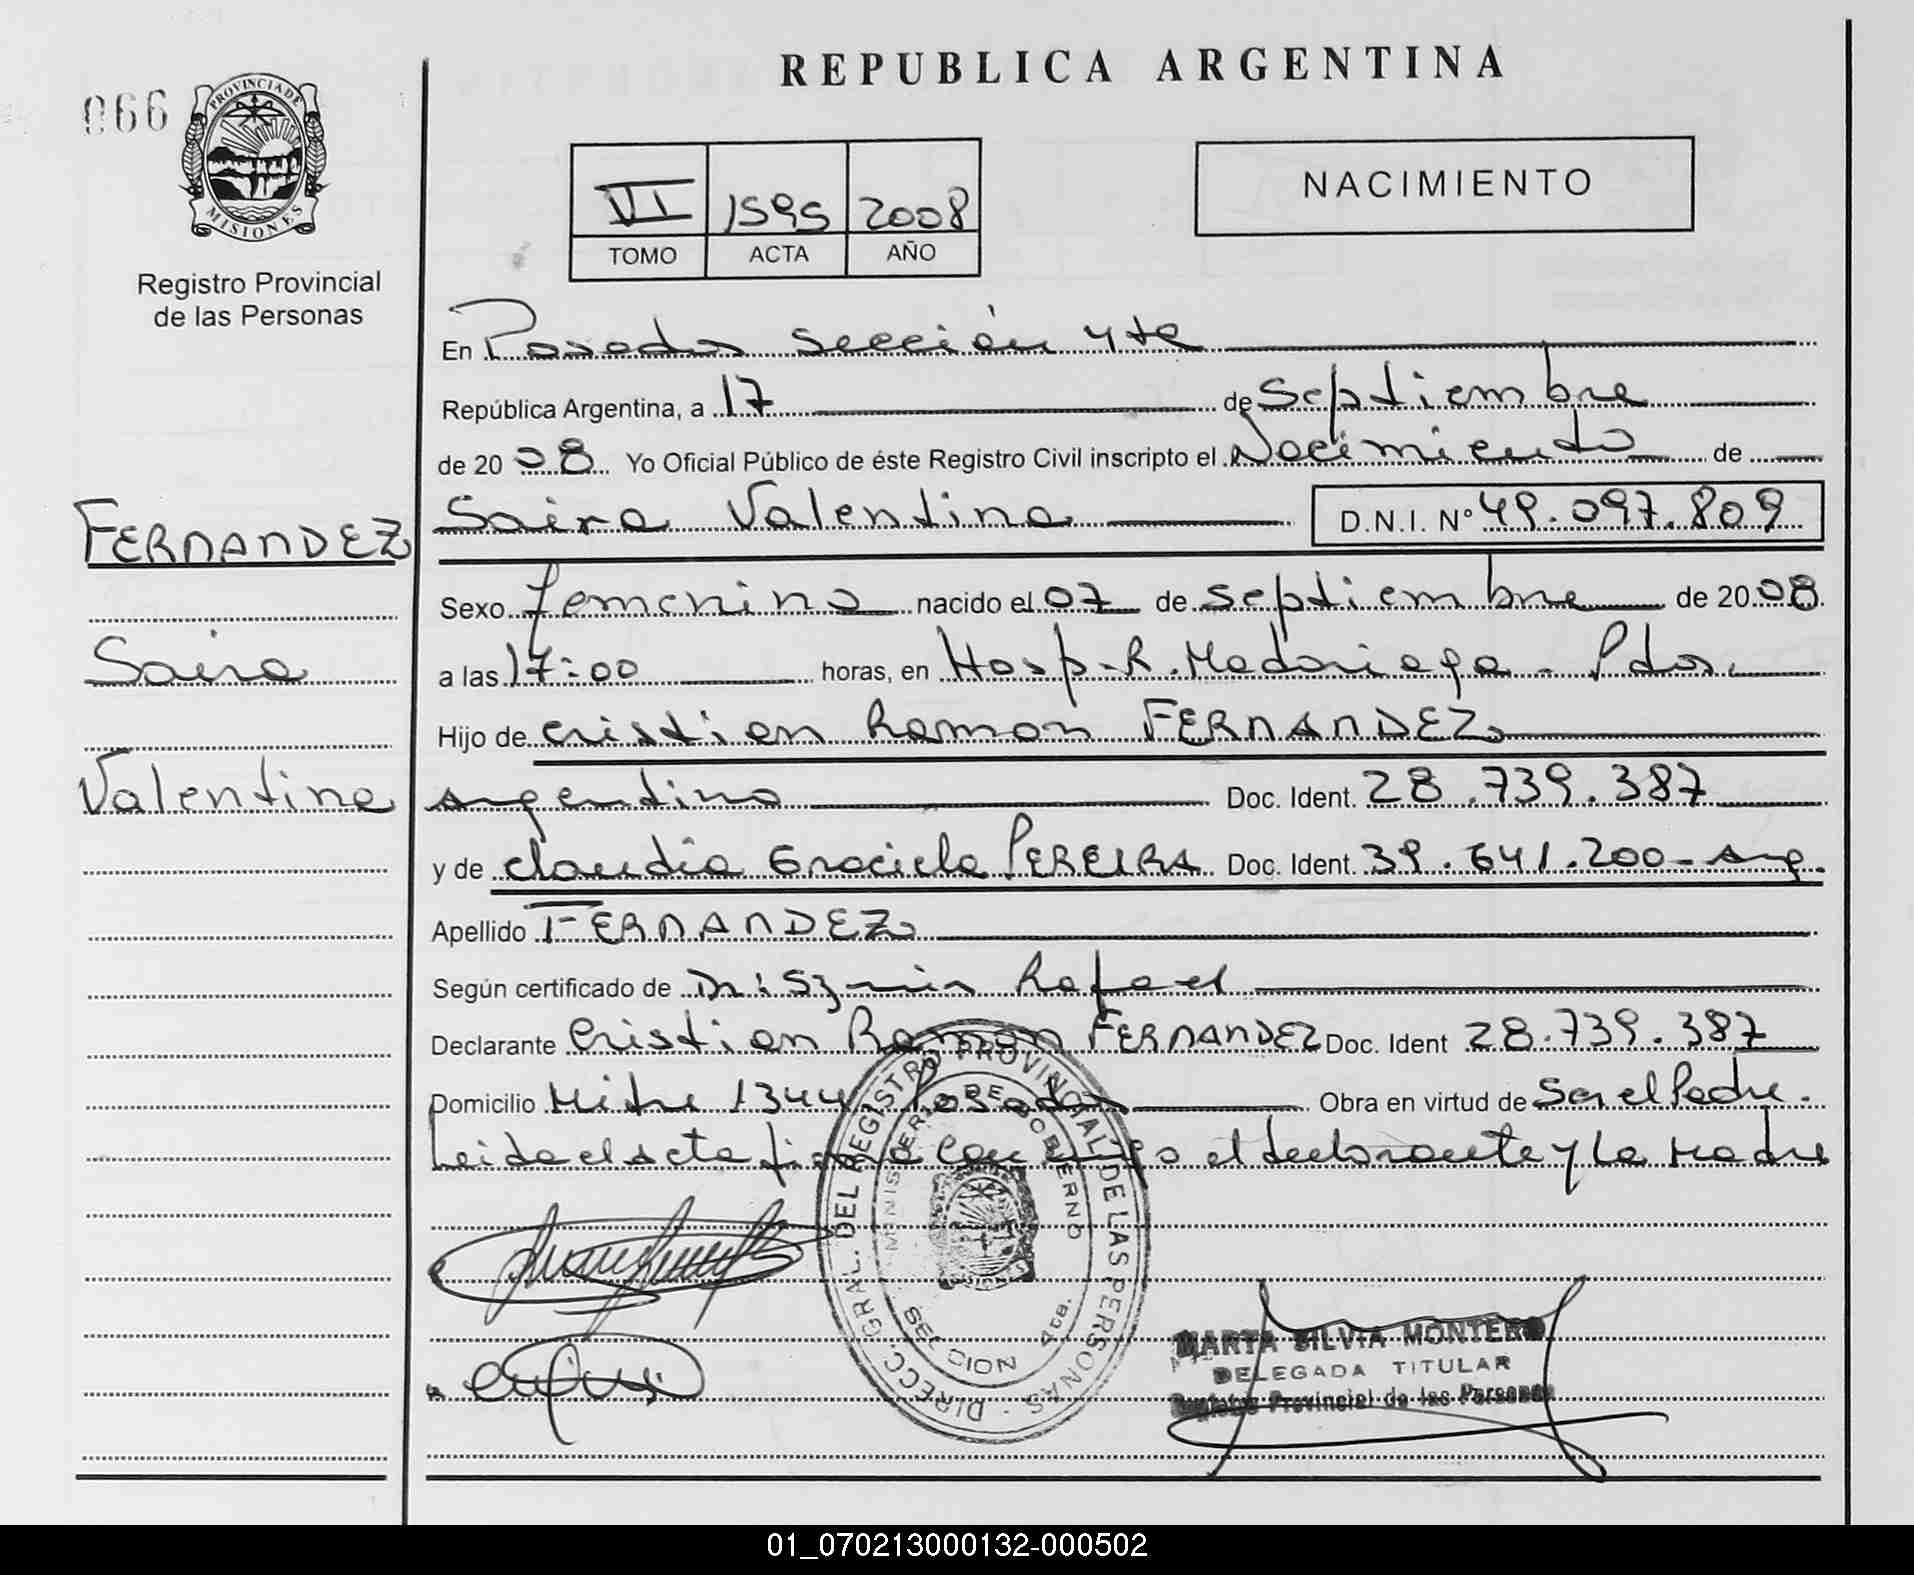 REPUBLICA ARGENTINA
066
PROVINCIA DE
MISIONES
Registro Provincial
de las Personas
VI 1595 2008
TOMO ACTA AÑO
NACIMIENTO
En Posadas sección 4ta
República Argentina, a 17 de Septiembre
de 2008 Yo Oficial Público de éste Registro Civil inscripto el Nacimiento de
FERNANDEZ
Saira
Valentina
Saira Valentina D.N.I. Nº 49.097.809
Sexo femenino nacido el 07 de septiembre de 2008
a las 17:00 horas, en Hosp. R. Madariaga - Pdas.
Hijo de Cristian Ramon FERNANDEZ
argentino Doc. Ident. 28.739.387
y de Claudia Graciela PEREIRA Doc. Ident. 39.641.200 - Arg.
Apellido FERNANDEZ
Según certificado de Dr: Rafael
Declarante Cristian Ramon FERNANDEZ Doc. Ident 28.739.387
Domicilio Mitre 1344 Posadas Obra en virtud de Ser el Padre.
Leida el acta firma conmigo el declarante y la Madre
DIRECC. GRAL. DEL REGISTRO PROVINCIAL DE LAS PERSONAS
MINISTERIO DE GOBIERNO
MARTA SILVIA MONTERO
DELEGADA TITULAR
Registro Provincial de las Personas
01_070213000132-000502